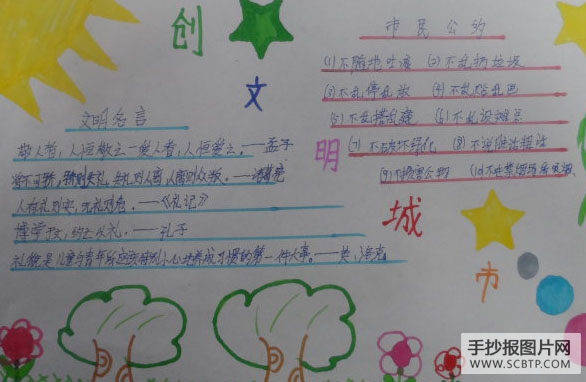 创
文
明
城
市
市民公约
(1)不随地吐痰 (2)不乱扔垃圾
(3)不乱停乱放 (4)不乱贴乱画
(5)不乱搭乱建 (6)不乱设摊点
(7)不破坏绿化 (8)不说脏话粗话
(9)不损害公物 (10)不在禁烟场所吸烟
文明名言
敬人者,人恒敬之,爱人者,人恒爱之。——孟子
将不可骄,骄则失礼,失礼则人离,人离则众叛。——诸葛亮
人有礼则安,无礼则危。——《礼记》
博学于文,约之以礼。——孔子
礼貌是儿童与青年所应该特别小心地养成习惯的第一件大事。——
手抄报图片网
WWW.SCBTP.COM